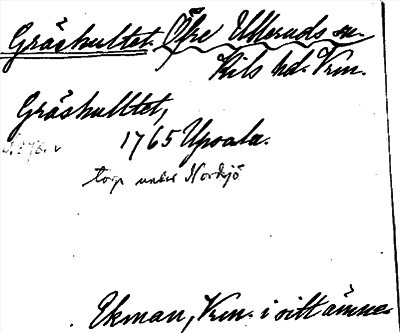 Gräshultet. Öfre Ullerads sn.
Kils hd. Vrm.
Gräshulltet,
1765 Upsala.
torp under Norsjö
Ekman, Vrm. i sitt ämne.